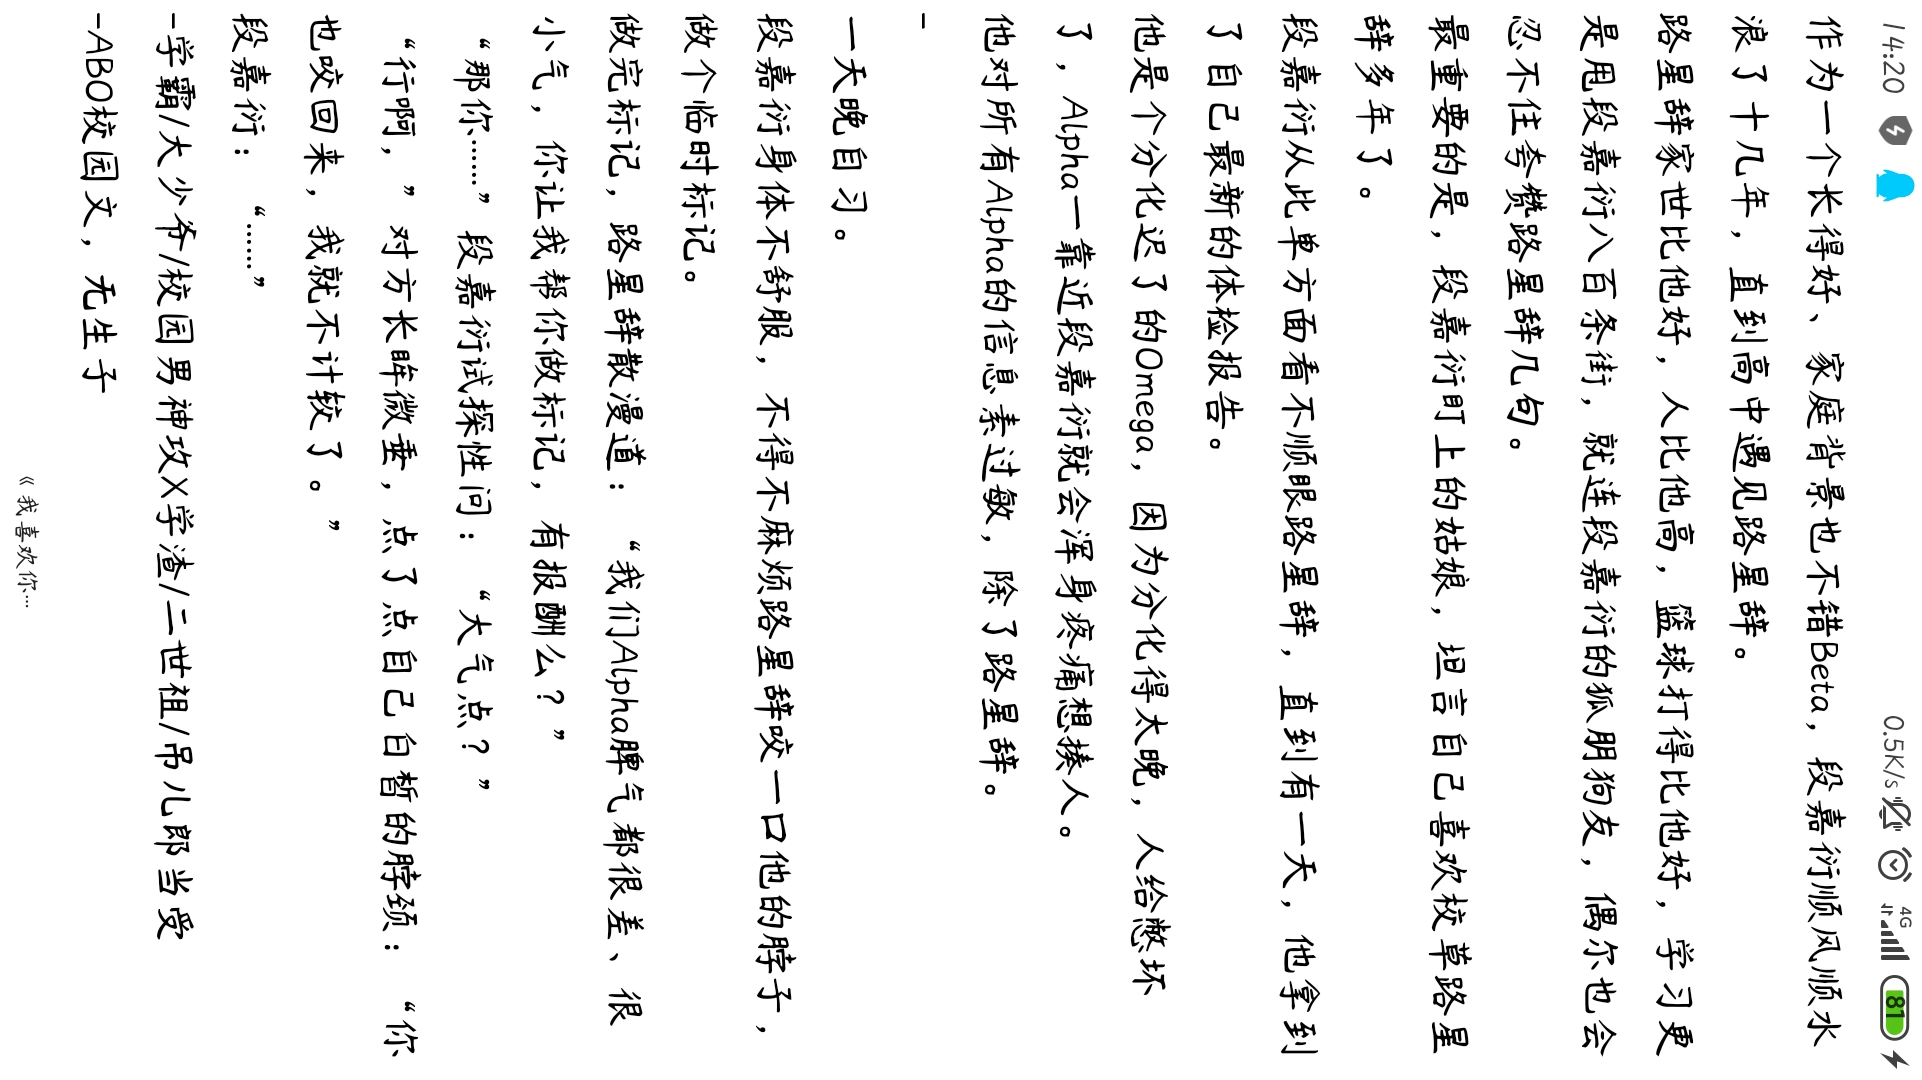 14:20 0.5K/s 4G 81
作为一个长得好、家庭背景也不错Beta，段嘉衍顺风顺水
浪了十几年，直到高中遇见路星辞。
路星辞家世比他好，人比他高，篮球打得比他好，学习更
是甩段嘉衍八百条街，就连段嘉衍的狐朋狗友，偶尔也会
忍不住夸赞路星辞几句。
最重要的是，段嘉衍盯上的姑娘，坦言自己喜欢校草路星
辞多年了。
段嘉衍从此单方面看不顺眼路星辞，直到有一天，他拿到
了自己最新的体检报告。
他是个分化迟了的Omega，因为分化得太晚，人给憋坏
了，Alpha一靠近段嘉衍就会浑身疼痛想揍人。
他对所有Alpha的信息素过敏，除了路星辞。
-
一天晚自习。
段嘉衍身体不舒服，不得不麻烦路星辞咬一口他的脖子，
做个临时标记。
做完标记，路星辞散漫道：“我们Alpha脾气都很差、很
小气，你让我帮你做标记，有报酬么？”
“那你……”段嘉衍试探性问：“大气点？”
“行啊，”对方长眸微垂，点了点自己白皙的脖颈：“你
也咬回来，我就不计较了。”
段嘉衍：“……”
-学霸/大少爷/校园男神攻X学渣/二世祖/吊儿郎当受
-ABO校园文，无生子
《我喜欢你...